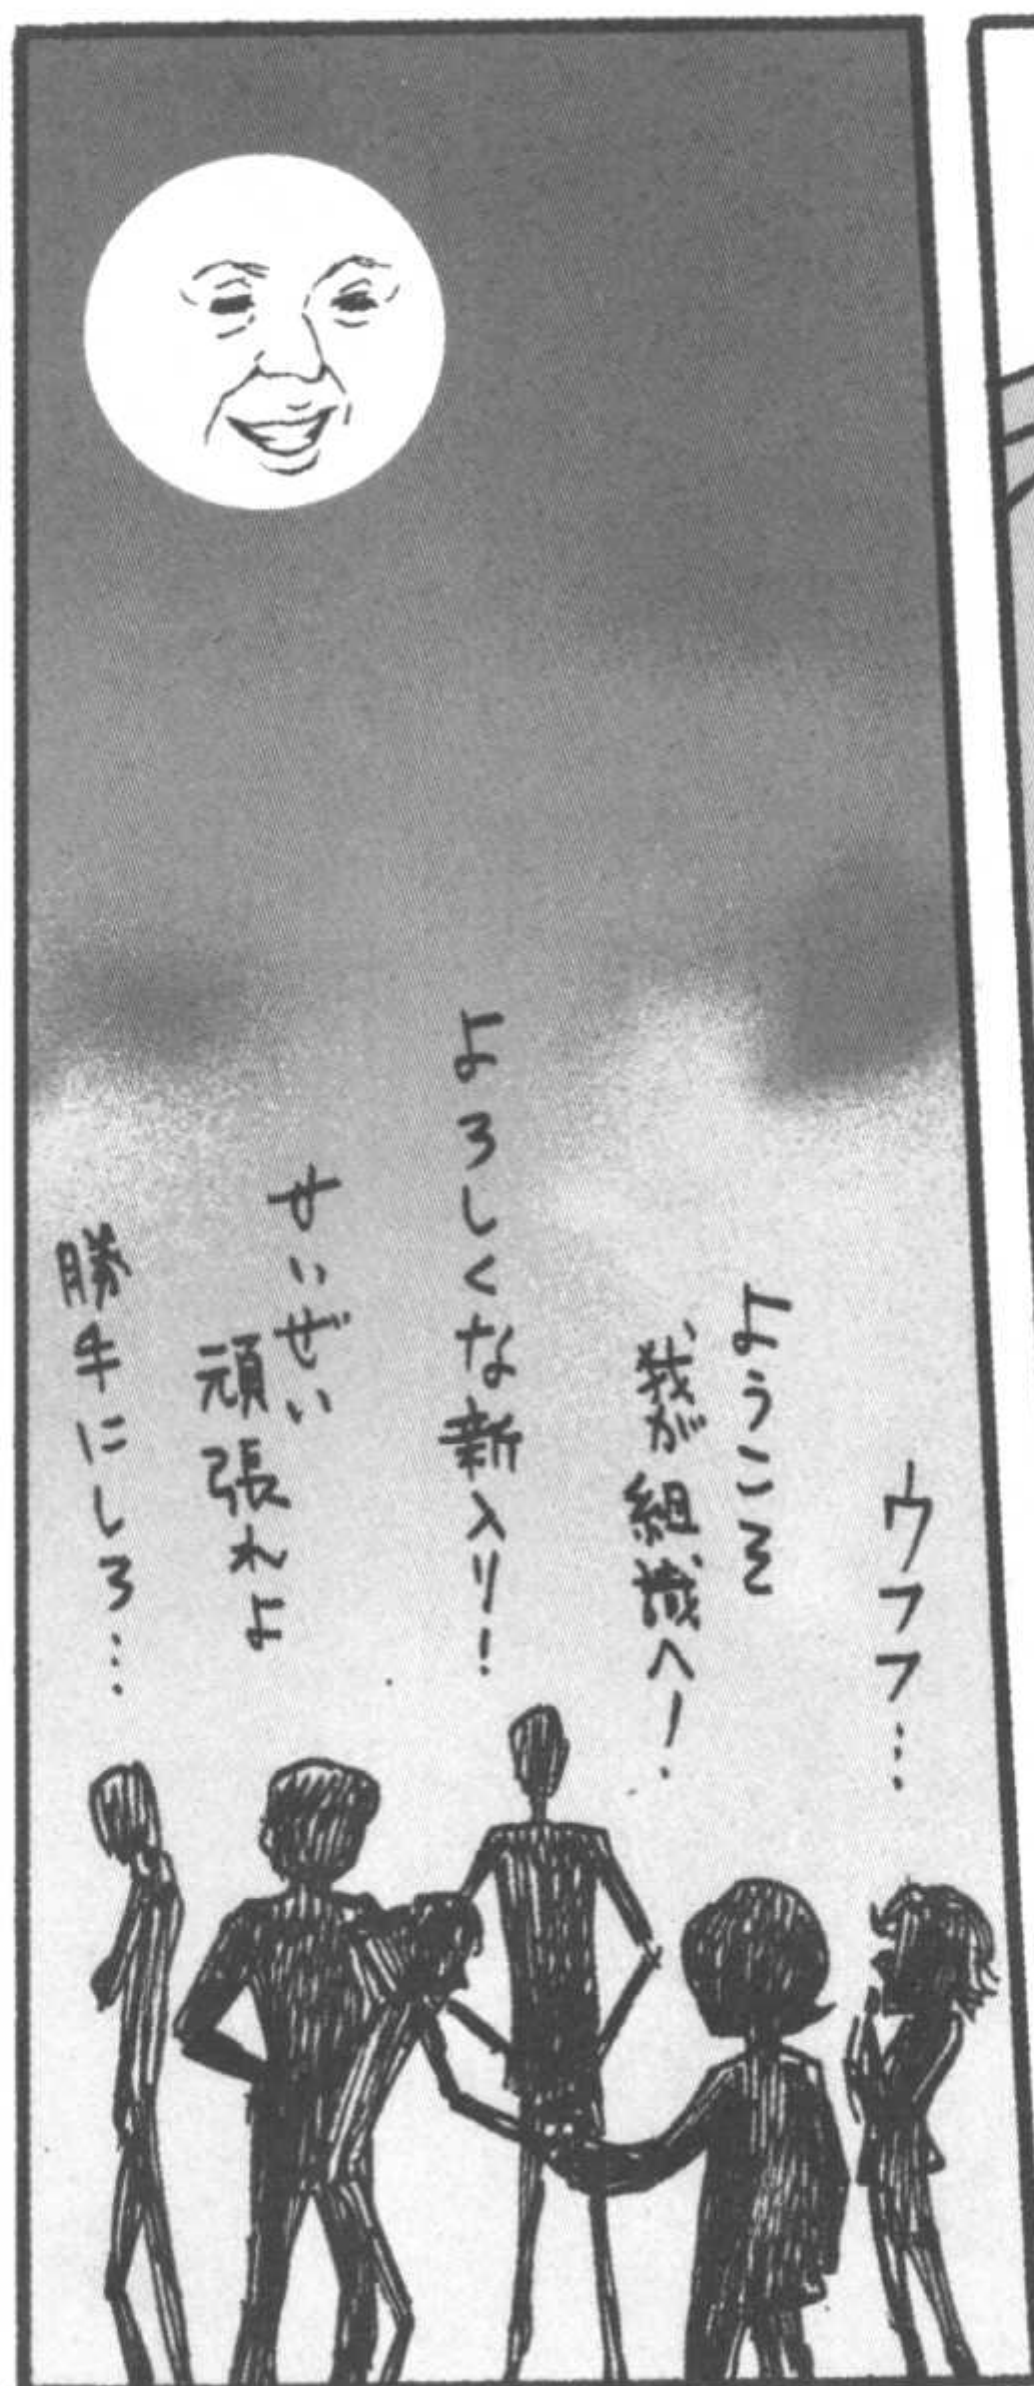 ウフフ…
ようこそ
我が組織へ!
よろしくな新入り!
せいぜい
頑張れよ
勝手にしろ…